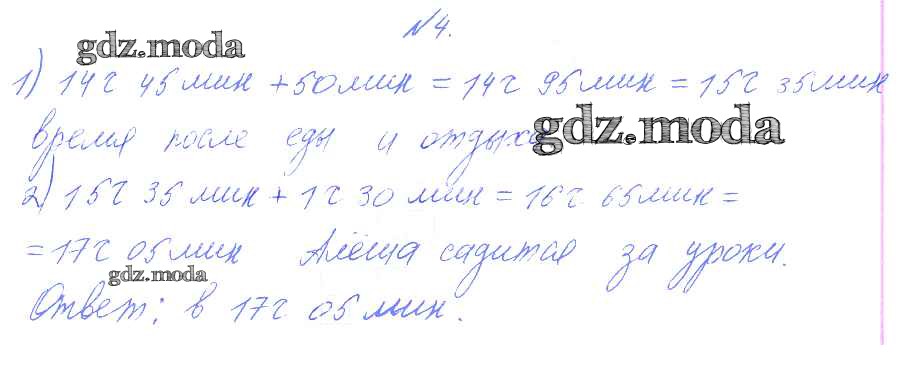 №4.
gdz.moda
1) 14ч 45мин +50мин = 14ч 95мин = 15ч 35мин
время после еды и отдыха
gdz.moda
2) 15ч 35мин + 1ч 30мин = 16ч 65мин =
= 17ч 05мин Алёша садится за уроки.
gdz.moda
Ответ: в 17ч 05мин.